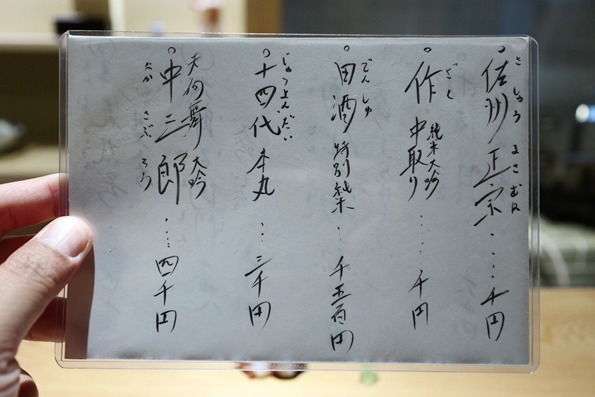 佐州正宗・・・・千円
さしゅうまさむね
作 純米大吟 中取り・・・・千円
ざく
田酒 特別純米・・千五百円
でんしゅ
十四代 本丸・・・二千円
じゅうよんだい
天狗舞 大吟
中三郎・・・・四千円
なかさぶろう